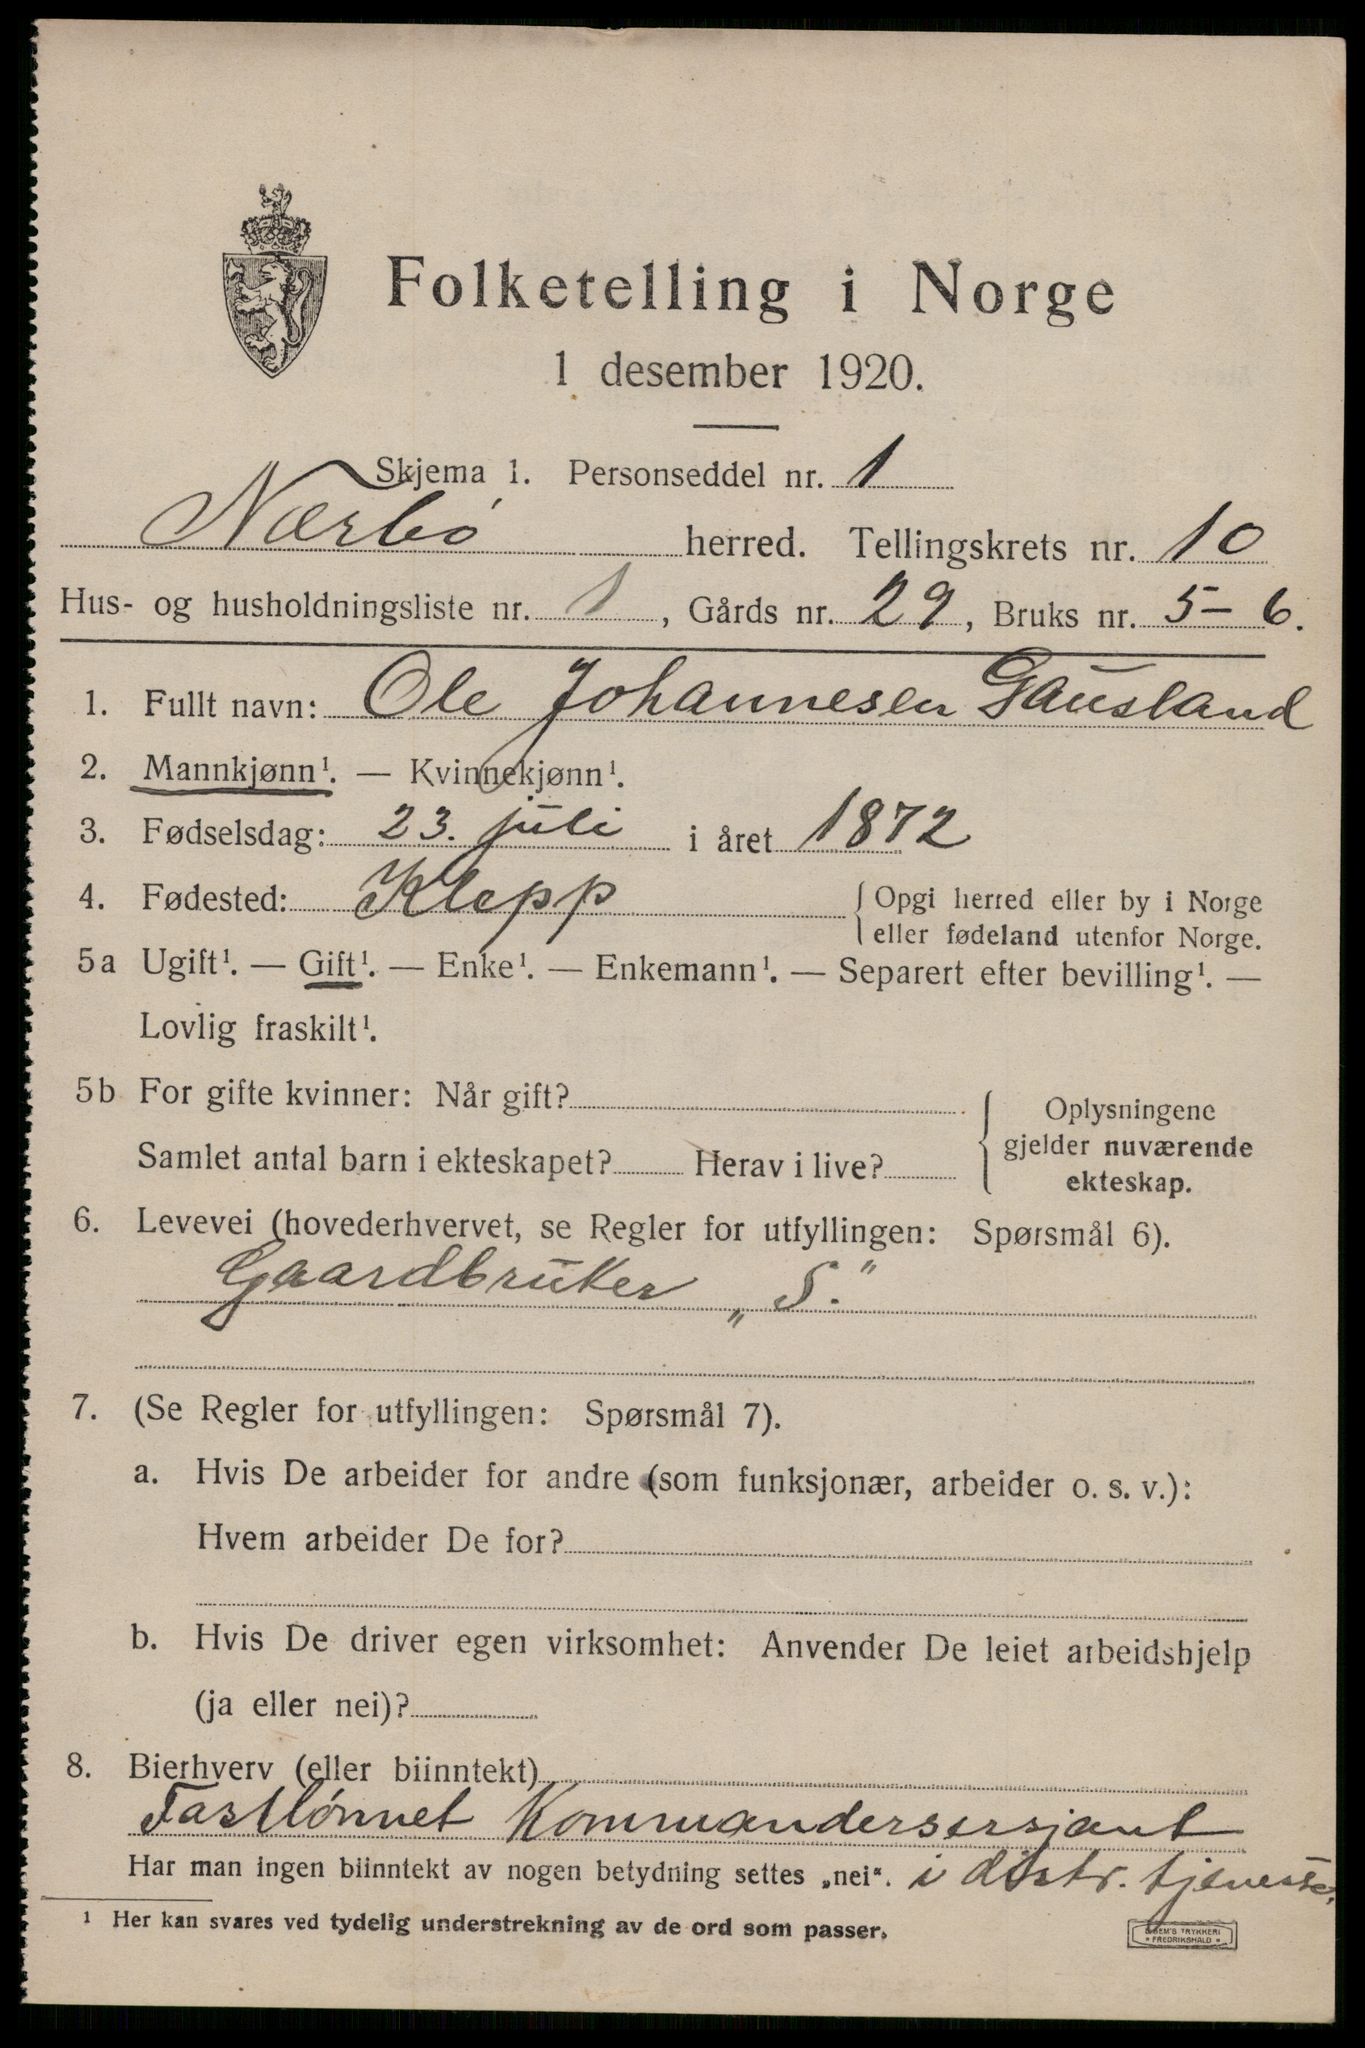 Folketelling i Norge
1 desember 1920.
Skjema 1. Personseddel nr. 1
Nærbö herred. Tellingskrets nr. 10
Hus- og husholdningsliste nr. 1, Gårds nr. 29, Bruks nr. 5-6.
1. Fullt navn: Ole Johannesen Gausland
2. Mannkjønn¹. — Kvinnekjønn¹.
3. Fødselsdag: 23. juli i året 1872
4. Fødested: Klepp { Opgi herred eller by i Norge
eller fødeland utenfor Norge.
5a Ugift¹. — Gift¹. — Enke¹. — Enkemann¹. — Separert efter bevilling¹. —
Lovlig fraskilt¹.
5b For gifte kvinner: Når gift?
Samlet antal barn i ekteskapet? Herav i live?
{ Oplysningene
gjelder nuværende
ekteskap.
6. Levevei (hovederhvervet, se Regler for utfyllingen: Spørsmål 6).
Gaardbruker „S.“
7. (Se Regler for utfyllingen: Spørsmål 7).
a. Hvis De arbeider for andre (som funksjonær, arbeider o. s. v.):
Hvem arbeider De for?
b. Hvis De driver egen virksomhet: Anvender De leiet arbeidshjelp
(ja eller nei)?
8. Bierhverv (eller biinntekt)
Fastlönnet Kommandersersjant
Har man ingen biinntekt av nogen betydning settes „nei“. i distr. tjeneste.
¹ Her kan svares ved tydelig understrekning av de ord som passer.
TRYKKERI
* FREDRIKSHALD *